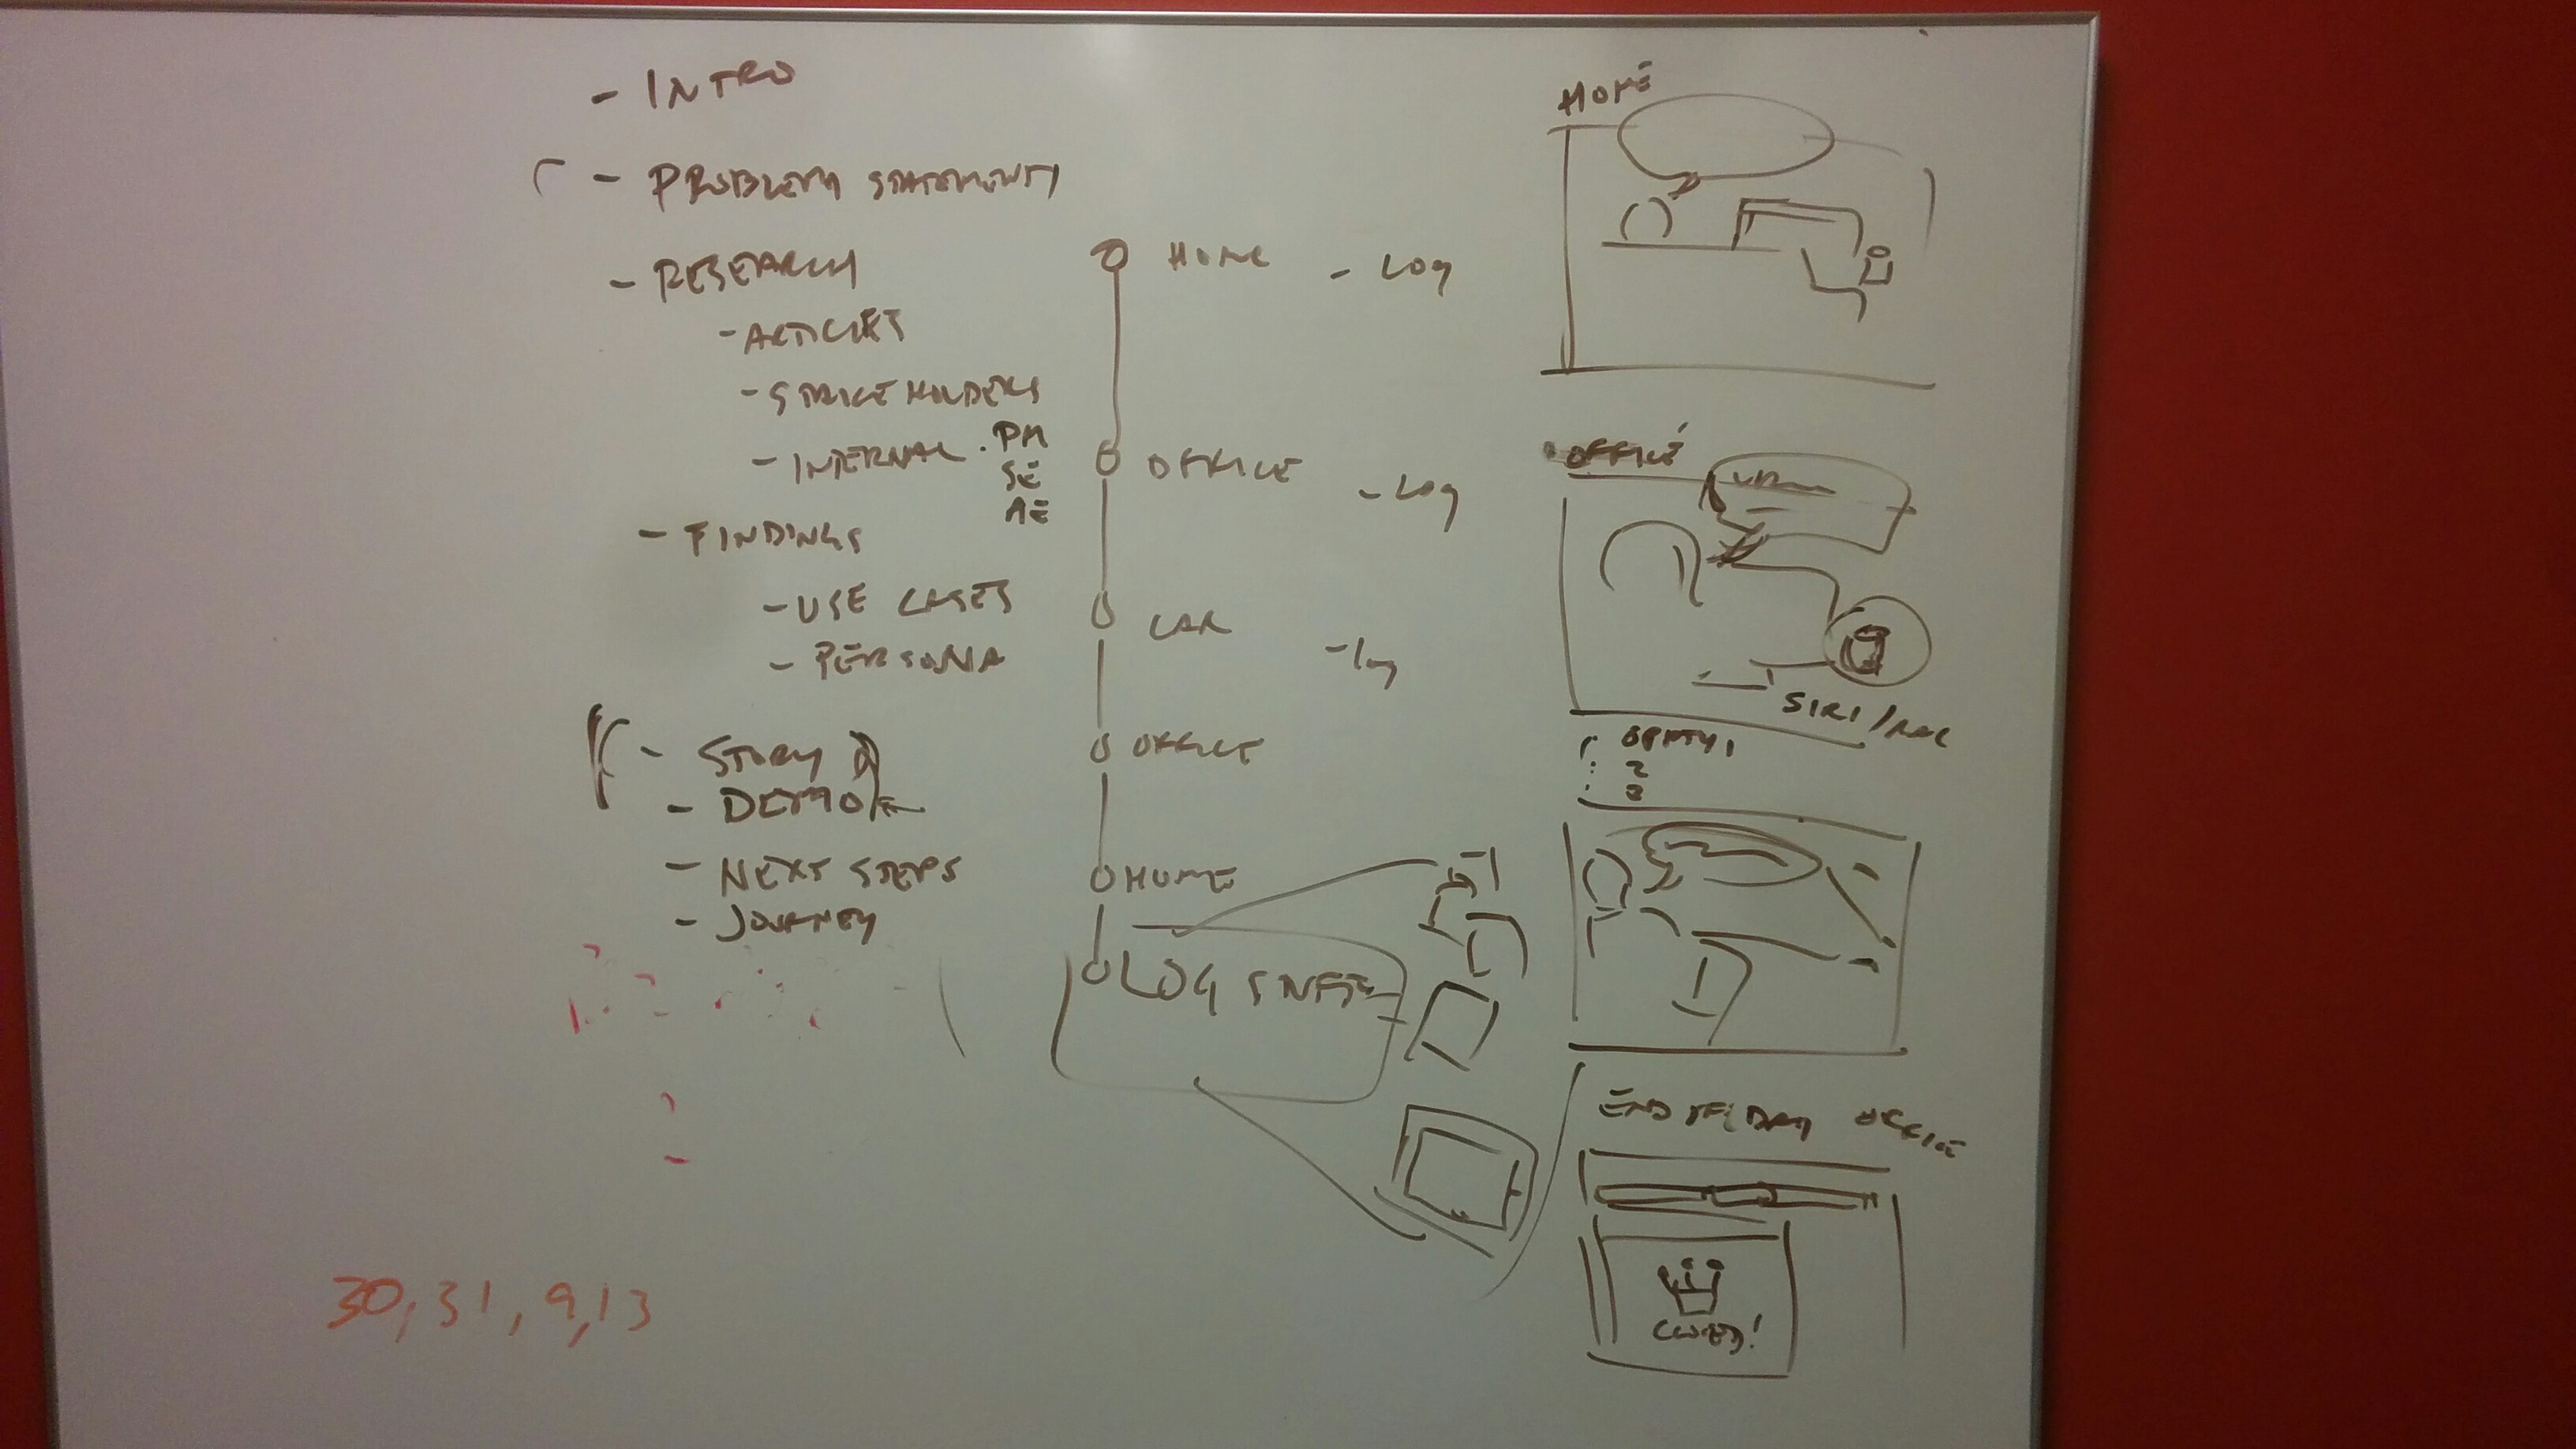 - INTRO
- PROBLEM STATEMENT
- RESEARCH
- ARTICLES
- STAKEHOLDERS
- INTERNAL . PM
SE
AE
- FINDINGS
- USE CASES
- PERSONA
- STORY
- DEMO
- NEXT STEPS
- JOURNEY
30, 31, 9, 13
HOME - LOG
OFFICE - LOG
CAR - log
OFFICE
HOME
LOG
HOME
OFFICE
SIRI /
OPPTY 1
2
3
END OF DAY OFFICE
CLOSED!